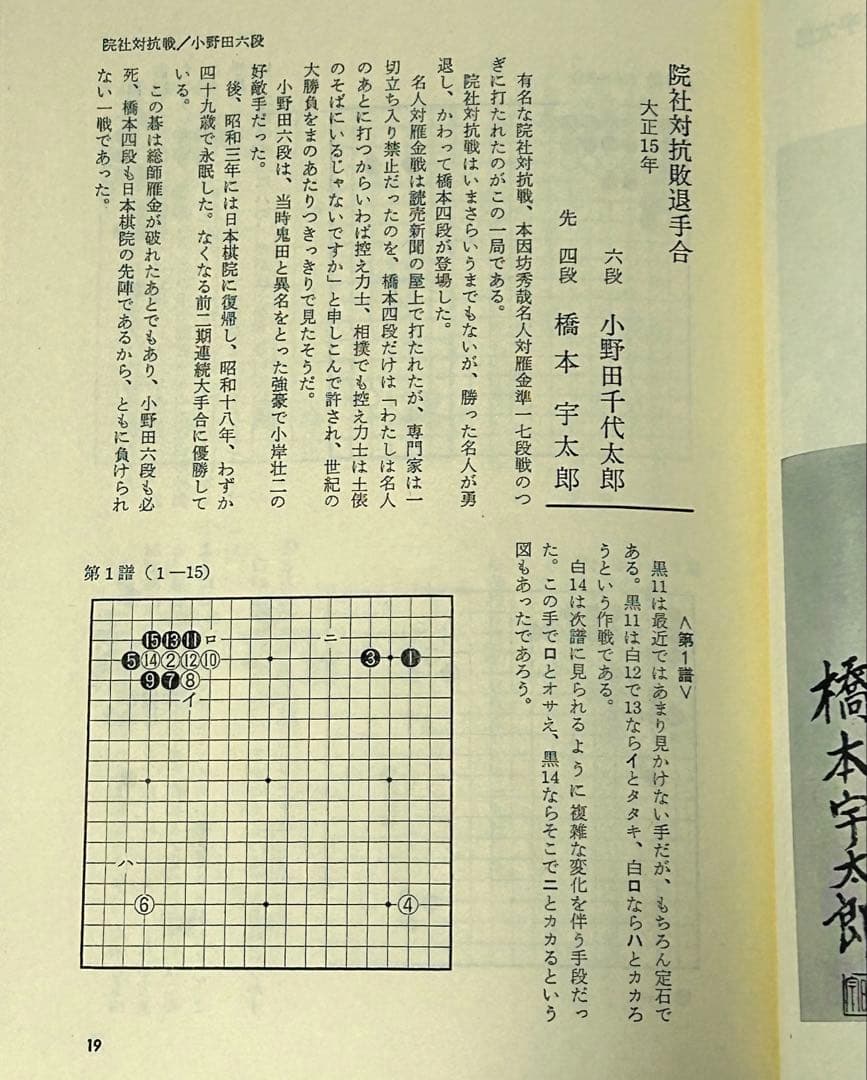 院社対抗戦/小野田六段
院社対抗敗退手合
大正15年
六段 小野田千代太郎
先 四段 橋本宇太郎
有名な院社対抗戦、本因坊秀哉名人対雁金準一七段戦のつ
ぎに打たれたのがこの一局である。
院社対抗戦はいまさらいうまでもないが、勝った名人が勇
退し、かわって橋本四段が登場した。
名人対雁金戦は読売新聞の屋上で打たれたが、専門家は一
切立ち入り禁止だったのを、橋本四段だけは「わたしは名人
のあとに打つからいわば控え力士、相撲でも控え力士は土俵
のそばにいるじゃないですか」と申しこんで許され、世紀の
大勝負をまのあたりつきっきりで見たそうだ。
小野田六段は、当時鬼田と異名をとった強豪で小岸壮二の
好敵手だった。
後、昭和三年には日本棋院に復帰し、昭和十八年、わずか
四十九歳で永眠した。なくなる前二期連続大手合に優勝して
いる。
この碁は総師雁金が破れたあとでもあり、小野田六段も必
死、橋本四段も日本棋院の先陣であるから、ともに負けられ
ない一戦であった。
<第1譜>
黒11は最近ではあまり見かけない手だが、もちろん定石で
ある。黒11は白12で13ならイとタタキ、白ロならハとカカろ
うという作戦である。
白14は次譜に見られるように複雑な変化を伴う手段だっ
た。この手でロとオサえ、黒14ならそこでニとカカるという
図もあったであろう。
第1譜(1—15)
⓯⓭⓫ロ ニ
❺⑭②⑫⑩ ❸ ❶
❾❼⑧
イ
ハ
⑥ ④
19
橋本宇太郎